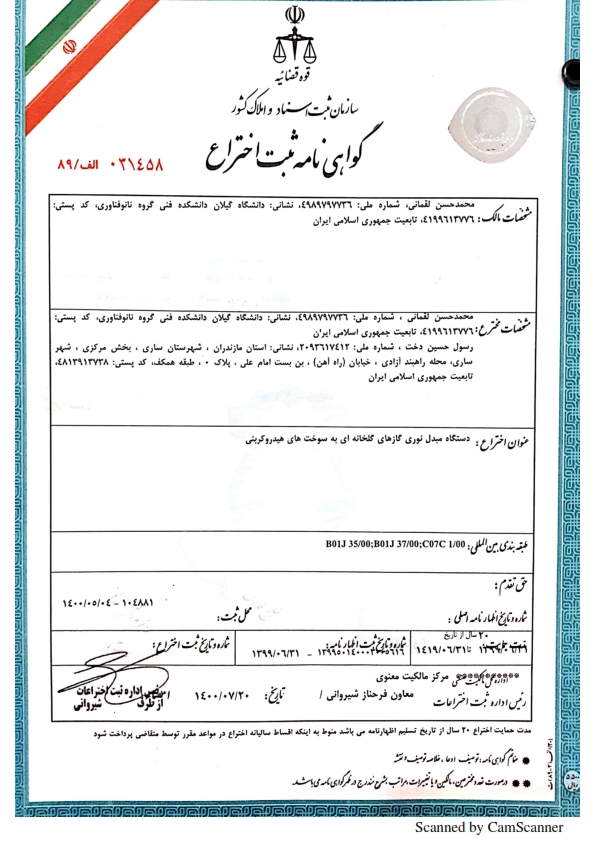 قوه قضائیه
سازمان ثبت اسناد و املاک کشور
گواهی نامه ثبت اختراع
۰۳۱۴۵۸ الف/۸۹
مشخصات مالک: محمدحسن لقمانی، شماره ملی: ۴۹۸۹۷۹۷۷۳۶، نشانی: دانشگاه گیلان دانشکده فنی گروه نانوفناوری، کد پستی:
۴۱۹۹۶۱۳۷۷۶، تابعیت جمهوری اسلامی ایران
مشخصات مخترع: محمدحسن لقمانی ، شماره ملی: ۴۹۸۹۷۹۷۷۳۶، نشانی: دانشگاه گیلان دانشکده فنی گروه نانوفناوری، کد پستی:
۴۱۹۹۶۱۳۷۷۶، تابعیت جمهوری اسلامی ایران
رسول حسین دخت ، شماره ملی: ۲۰۹۳۶۱۷۴۱۲، نشانی: استان مازندران ، شهرستان ساری ، بخش مرکزی ، شهر
ساری، محله راهبند آزادی ، خیابان (راه آهن) ، بن بست امام علی ، پلاک ۰ ، طبقه همکف، کد پستی: ۴۸۱۳۹۱۳۷۳۸،
تابعیت جمهوری اسلامی ایران
عنوان اختراع: دستگاه مبدل نوری گازهای گلخانه ای به سوخت های هیدروکربنی
طبقه بندی بین المللی: B01J 35/00;B01J 37/00;C07C 1/00
حق تقدم:
شماره و تاریخ اظهارنامه اصلی :
محل ثبت:
۱۰۴۸۸۱ - ۱۴۰۰/۰۵/۰۴
۲۰ سال از تاریخ
تا ۱۴۱۹/۰۶/۳۱
شماره و تاریخ ثبت اظهارنامه:
- ۱۳۹۹/۰۶/۳۱
شماره و تاریخ ثبت اختراع:
مرکز مالکیت معنوی
رئیس اداره ثبت اختراعات
معاون فرحناز شیروانی /
تاریخ: ۱۴۰۰/۰۷/۲۰
رئیس اداره ثبت اختراعات
از طرف شیروانی
مدت حمایت اختراع ۲۰ سال از تاریخ تسلیم اظهارنامه می باشد منوط به اینکه اقساط سالیانه اختراع در مواعد مقرر توسط متقاضی پرداخت شود
* ضمائم گواهی نامه: توصیف، ادعا، خلاصه توصیف و نقشه
** در صورت تعدد مخترعین، مالکین و یا تغییرات، مراتب بشرح مندرج در ظهر گواهی نامه می باشد.
Scanned by CamScanner